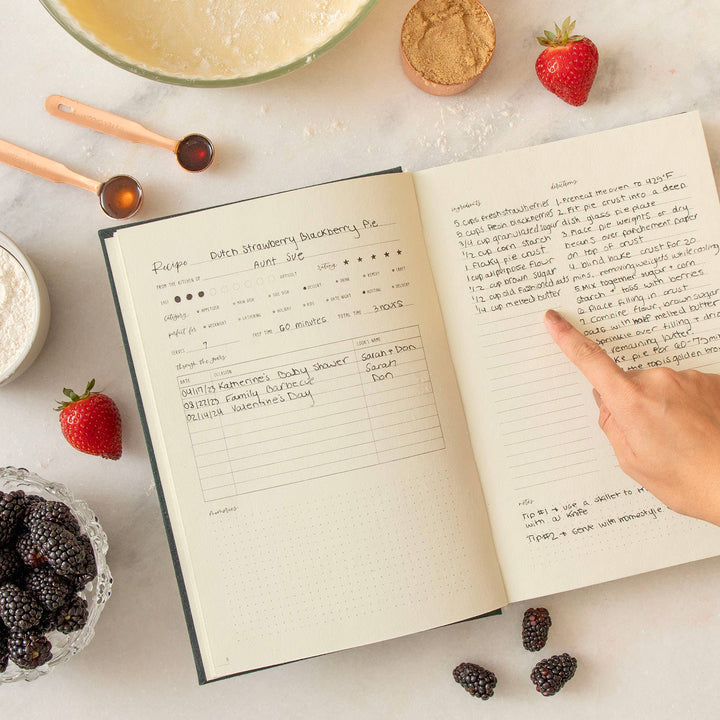 Recipe Dutch Strawberry Blackberry Pie
FROM THE KITCHEN OF Aunt Sue
EASY DIFFICULT rating ★ ★ ★ ★ ★
category APPETIZER MAIN DISH SIDE DISH DESSERT DRINK REMEDY CRAFT
perfect for WEEKNIGHT GATHERING HOLIDAY KIDS DATE NIGHT POTLUCK
SERVES PREP TIME 60 minutes TOTAL TIME 3 hours
through the years
DATE OCCASION COOK'S NAME
04/17/23 Katherine's Baby Shower Sarah + Don
08/22/23 Family Barbecue Sarah
02/14/24 Valentine's Day Don
memories
ingredients
5 cups fresh strawberries
5 cups fresh blackberries
3/4 cup granulated sugar
1/2 cup corn starch
1 flaky pie crust
1 cup all purpose flour
1/2 cup brown sugar
1/2 cup old fashioned oats
1/4 cup melted butter
directions
1. Preheat the oven to 425°F
2. Fit pie crust into a deep
dish glass pie plate
3. Place pie weights or dry
beans over parchment paper
on top of crust
4. blind bake crust for 20
mins, removing weights while cooling
5. Mix together sugar + corn
starch + toss with berries
6. Place filling in crust
7. Combine flour, brown sugar
oats with half melted butter
Sprinkle over filling +
remaining butter
pie for
the top is golden
notes
Tip #1 → use a skillet to
with a knife
Tip #2 → serve with homestyle